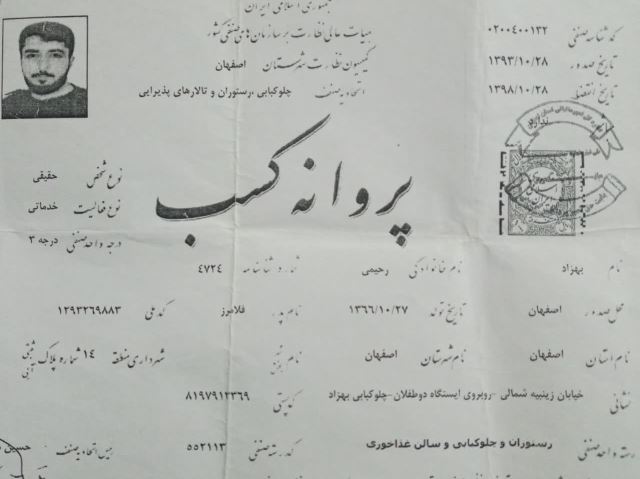 جمهوری اسلامی ایران
هیات عالی نظارت بر سازمان‌های صنفی کشور
کمیسیون نظارت شهرستان اصفهان
اتحادیه صنف چلوکبابی ،رستوران و تالارهای پذیرایی
کد شناسه صنفی ۰۲۰۰۴۰۰۱۳۲
تاریخ صدور ۱۳۹۳/۱۰/۲۸
تاریخ انقضاء ۱۳۹۸/۱۰/۲۸
پروانه کسب
نوع شخص حقیقی
نوع فعالیت خدماتی
درجه واحد صنفی درجه ۳
نام بهزاد نام خانوادگی رحیمی شماره شناسنامه ۴۷۲۴
محل صدور اصفهان تاریخ تولد ۱۳۶۶/۱۰/۲۷ نام پدر فلامرز کد ملی ۱۲۹۳۲۶۹۸۸۳
نام استان اصفهان نام شهرستان اصفهان نام شهرداری منطقه ۱۴ شماره پلاک ثبتی
نشانی خیابان زینبیه شمالی -روبروی ایستگاه دوطفلان-چلوکبابی بهزاد کد پستی ۸۱۹۷۹۱۲۳۶۹
رسته واحد صنفی رستوران و چلوکبابی و سالن غذاخوری کد رسته صنفی ۵۵۲۱۱۳ رئیس اتحادیه صنف حسین